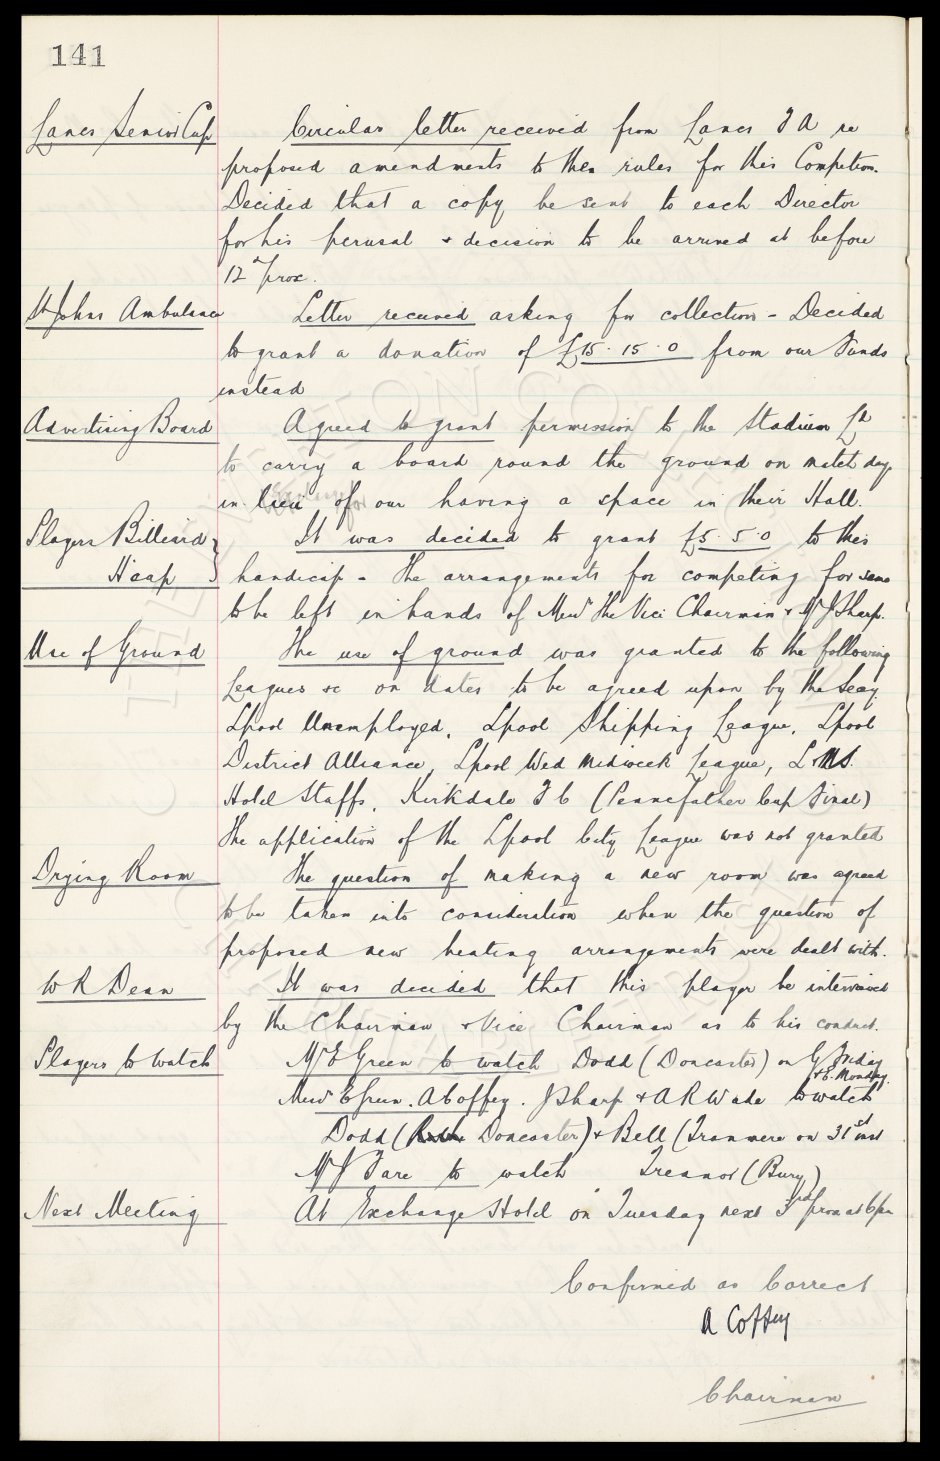 141
Lancs Senior Cup Circular letter received from Lancs F A re
proposed amendments to the rules for this Competion.
Decided that a copy be sent to each Director
for his perusal & decision to be arrived at before
12th prox.
St Johns Ambulance Letter received asking for collection - Decided
to grant a donation of £15.15.0 from our Funds
instead
Advertising Board Agreed to grant permission to the Stadium Ld
to carry a board round the ground on match days
in lieu of our having a space in their Hall.
Players Billiard It was decided to grant £5.5.0 to this
H'cap handicap - The arrangements for competing for same
to be left in hands of Messrs The Vice Chairman & Mr J Sharp.
Use of Ground The use of ground was granted to the following
Leagues &c on dates to be agreed upon by the Secy.
Lpool Unemployed, Lpool Shipping League, Lpool
District Alliance, Lpool Wed Midweek League, L.M.S.
Hotel Staffs, Kirkdale F C (Pennefather Cup Final)
The application of the Lpool City League was not granted
Drying Room The question of making a new room was agreed
to be taken into consideration when the question of
proposed new heating arrangements were dealt with.
W R Dean It was decided that this player be interviewed
by the Chairman & Vice Chairman as to his conduct.
Players to watch Mr E Green to watch Dodd (Doncaster) on G Friday
& E. Monday.
Messrs E Green. A Coffey. J Sharp & A R Wade to watch
Dodd (Doncaster) & Bell (Tranmere on 31st inst
Mr J Fare to watch Treanor (Bury)
Next Meeting At Exchange Hotel on Tuesday next 3rd prox at 6pm
Confirmed as Correct
A Coffey
Chairman